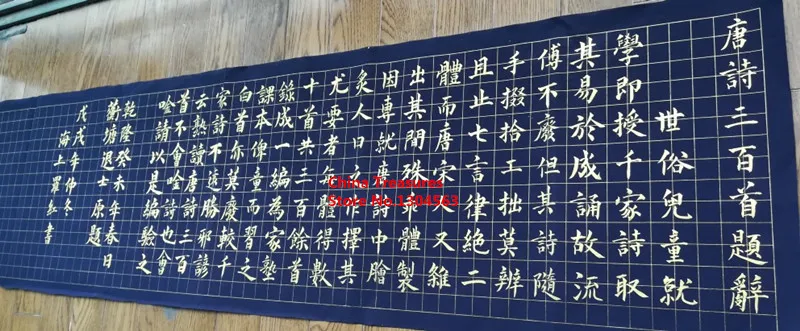 唐詩三百首題辭
世俗兒童就
學即授千家詩取
其易於成誦故流
傳不廢但其詩隨
手掇拾工拙莫辨
且止七言律絕二
體而唐宋人又雜
出其間殊乖體製
因專就唐詩中膾
炙人口之作擇其
尤要者每體得數
十首共三百餘首
錄成一編為家塾
課本俾童而習之
白首亦莫廢較千
家詩不遠勝耶諺
云熟讀唐詩三百
首不會吟詩也會
吟請以是編驗之
乾隆癸未年春日
蘅塘退士原題
戊戌年仲冬
海上羅紅書
China Treasures
Store No.1304563